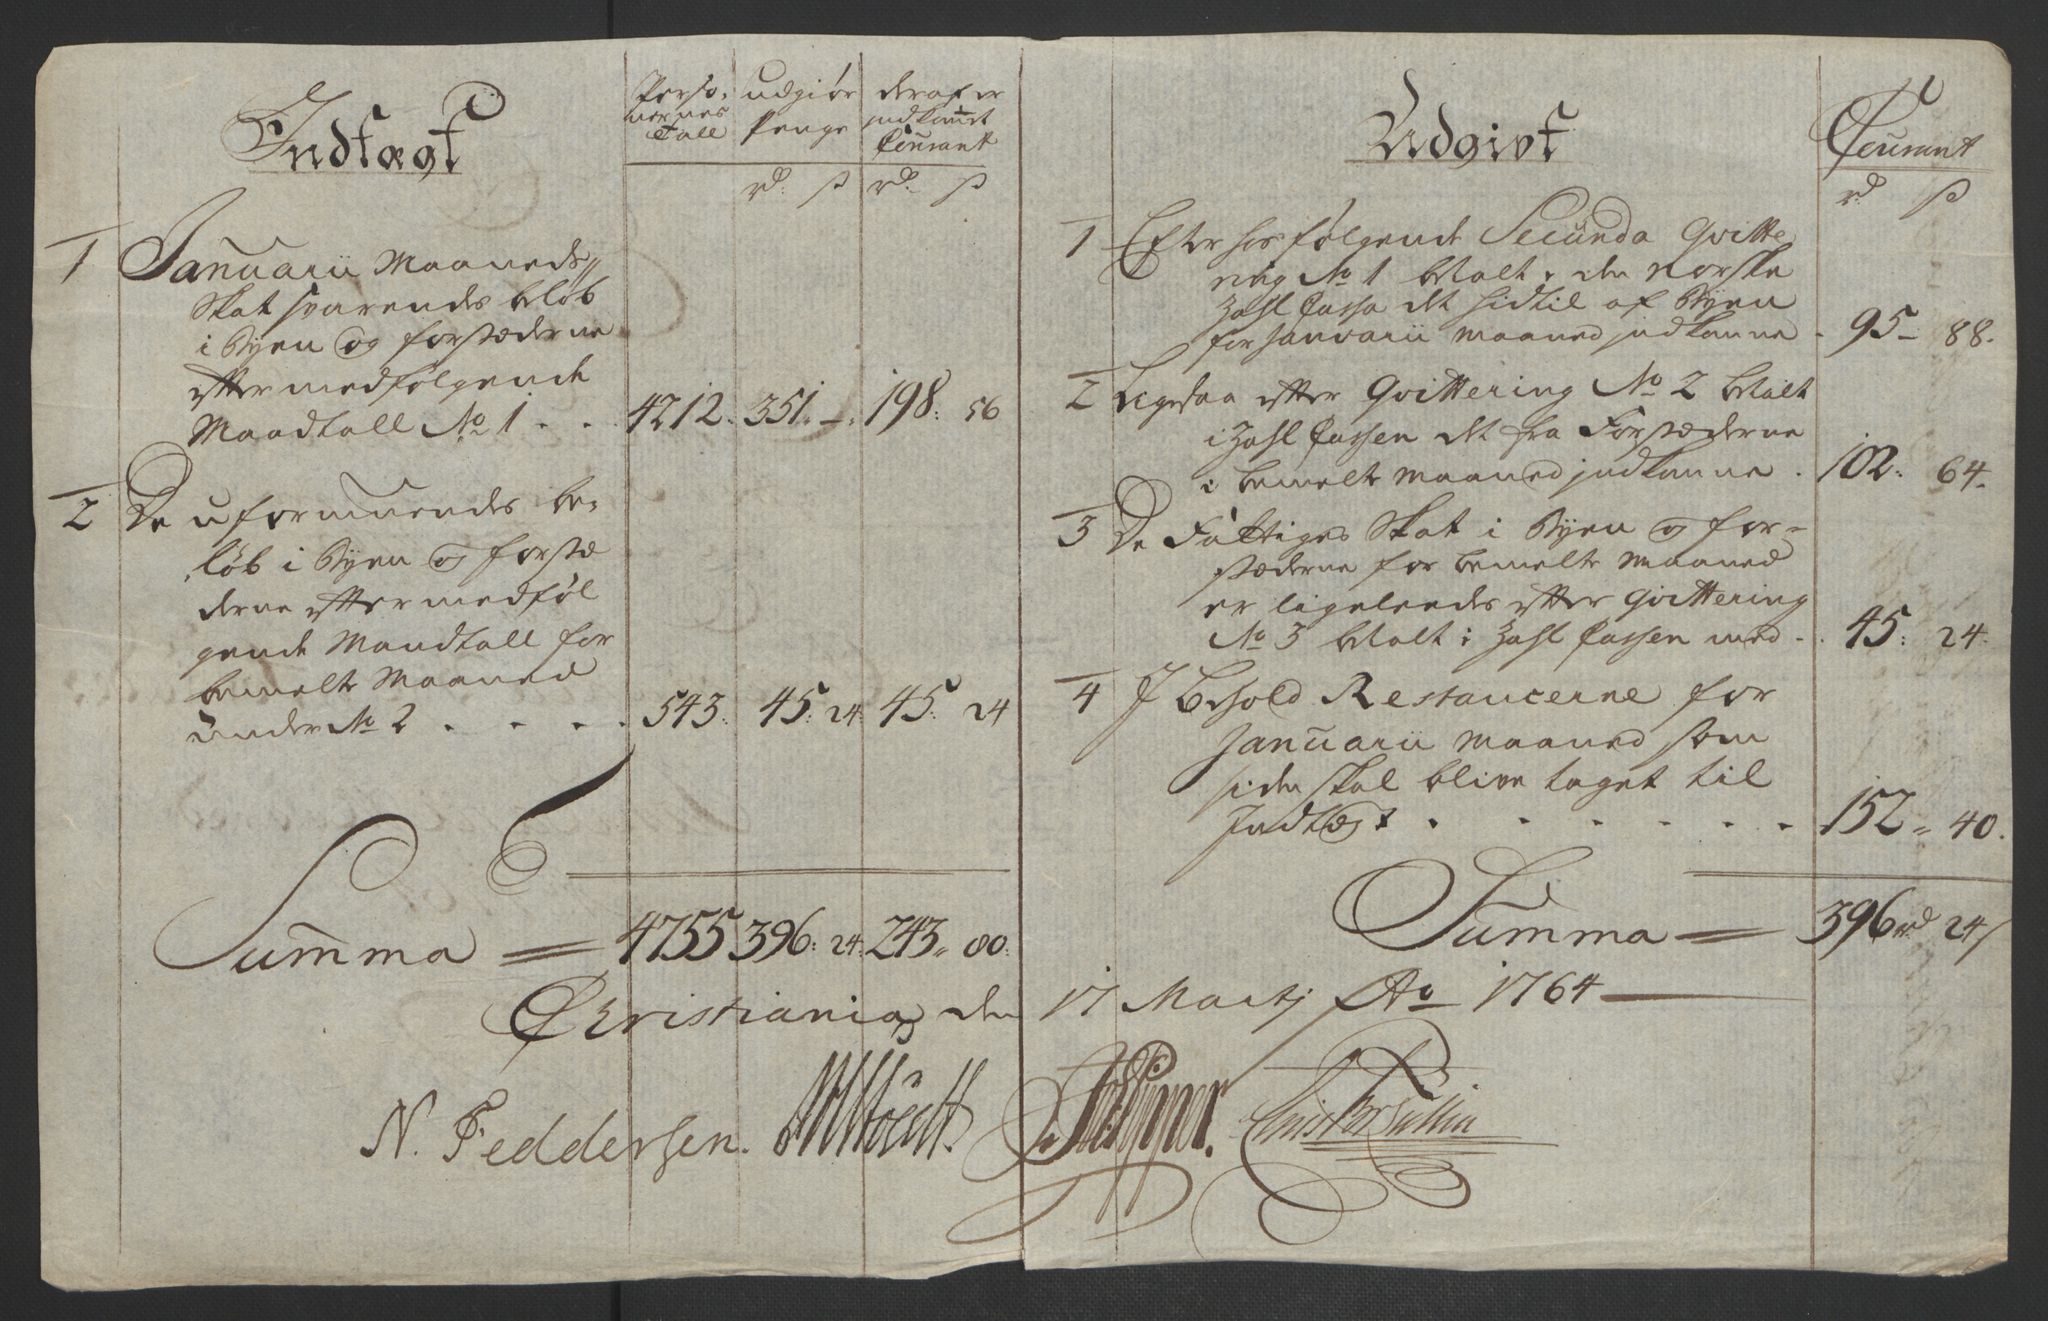 Indtægt
Perso-
nernes
Tall
udgiør
Penge
deraf er
indkomet
Courant
rd: s
rd: s
1 Januarii Maaneds
Skat svarendes beløb
i Byen og forstæderne
efter medfølgende
Mandtall No 1 . . 4212. 351. –. 198: 56
2 De uformuendes be-
løb i Byen og forstæ
derne efter medføl
gende Mandtall for
bemelte Maaned
under No 2 . . . . 543. 45: 24. 45: 24
Summa = 4755 396: 24. 243. 80.
Udgivt
Courant
rd s
1 Efter hosfølgende Secunda Qvitte
ring No 1 betalt i den norske
Zahl Cassa det hidtil af Byen
for Januarii Maaned indkomne . 95 – 88.
2 Ligesaa efter Qvittering No 2 betalt
i Zahl Cassen det fra Forstæderne
i bemelte Maaned indkomne . 102: 64.
3 De Fattiges Skat i Byen og for-
stæderne for bemelte Maaned
er ligeleedes efter Qvittering
No 3 betalt i Zahl Cassen med . 45: 24.
4 I Behold Restancerne for
Januarii Maaned som
siden skal blive taget til
Indtægt . . . . . . 152 „ 40.
Summa = 396 rd 24 s
Christiania den 17 Martj Ao 1764
N. Feddersen.